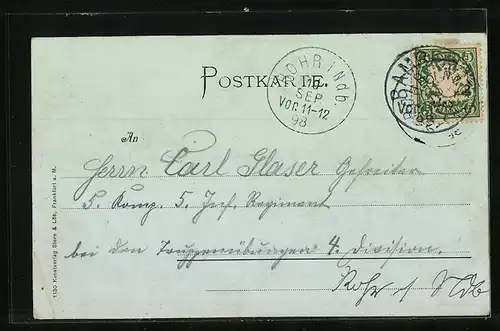 POSTKARTE.
ROHR i Ndb.
SEP
Vor. 11-12
98
BAM
Vor.
5
An
Herrn Carl Glaser Gefreiter
5. Komp. 5. Inf. Regiment
bei den Truppenübungen 4. Division.
Rohr i/Ndb
1130 Kunstverlag Stern & Löb, Frankfurt a. M.